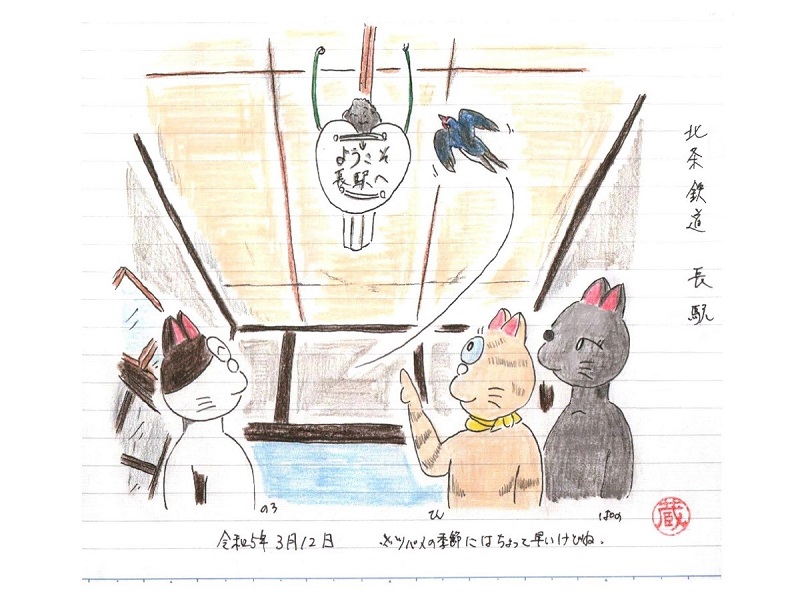 ようこそ
長駅へ
北条鉄道 長駅
のろ
ぱの
蔵
令和5年3月12日 ツバメの季節にはちょって早いけどね。